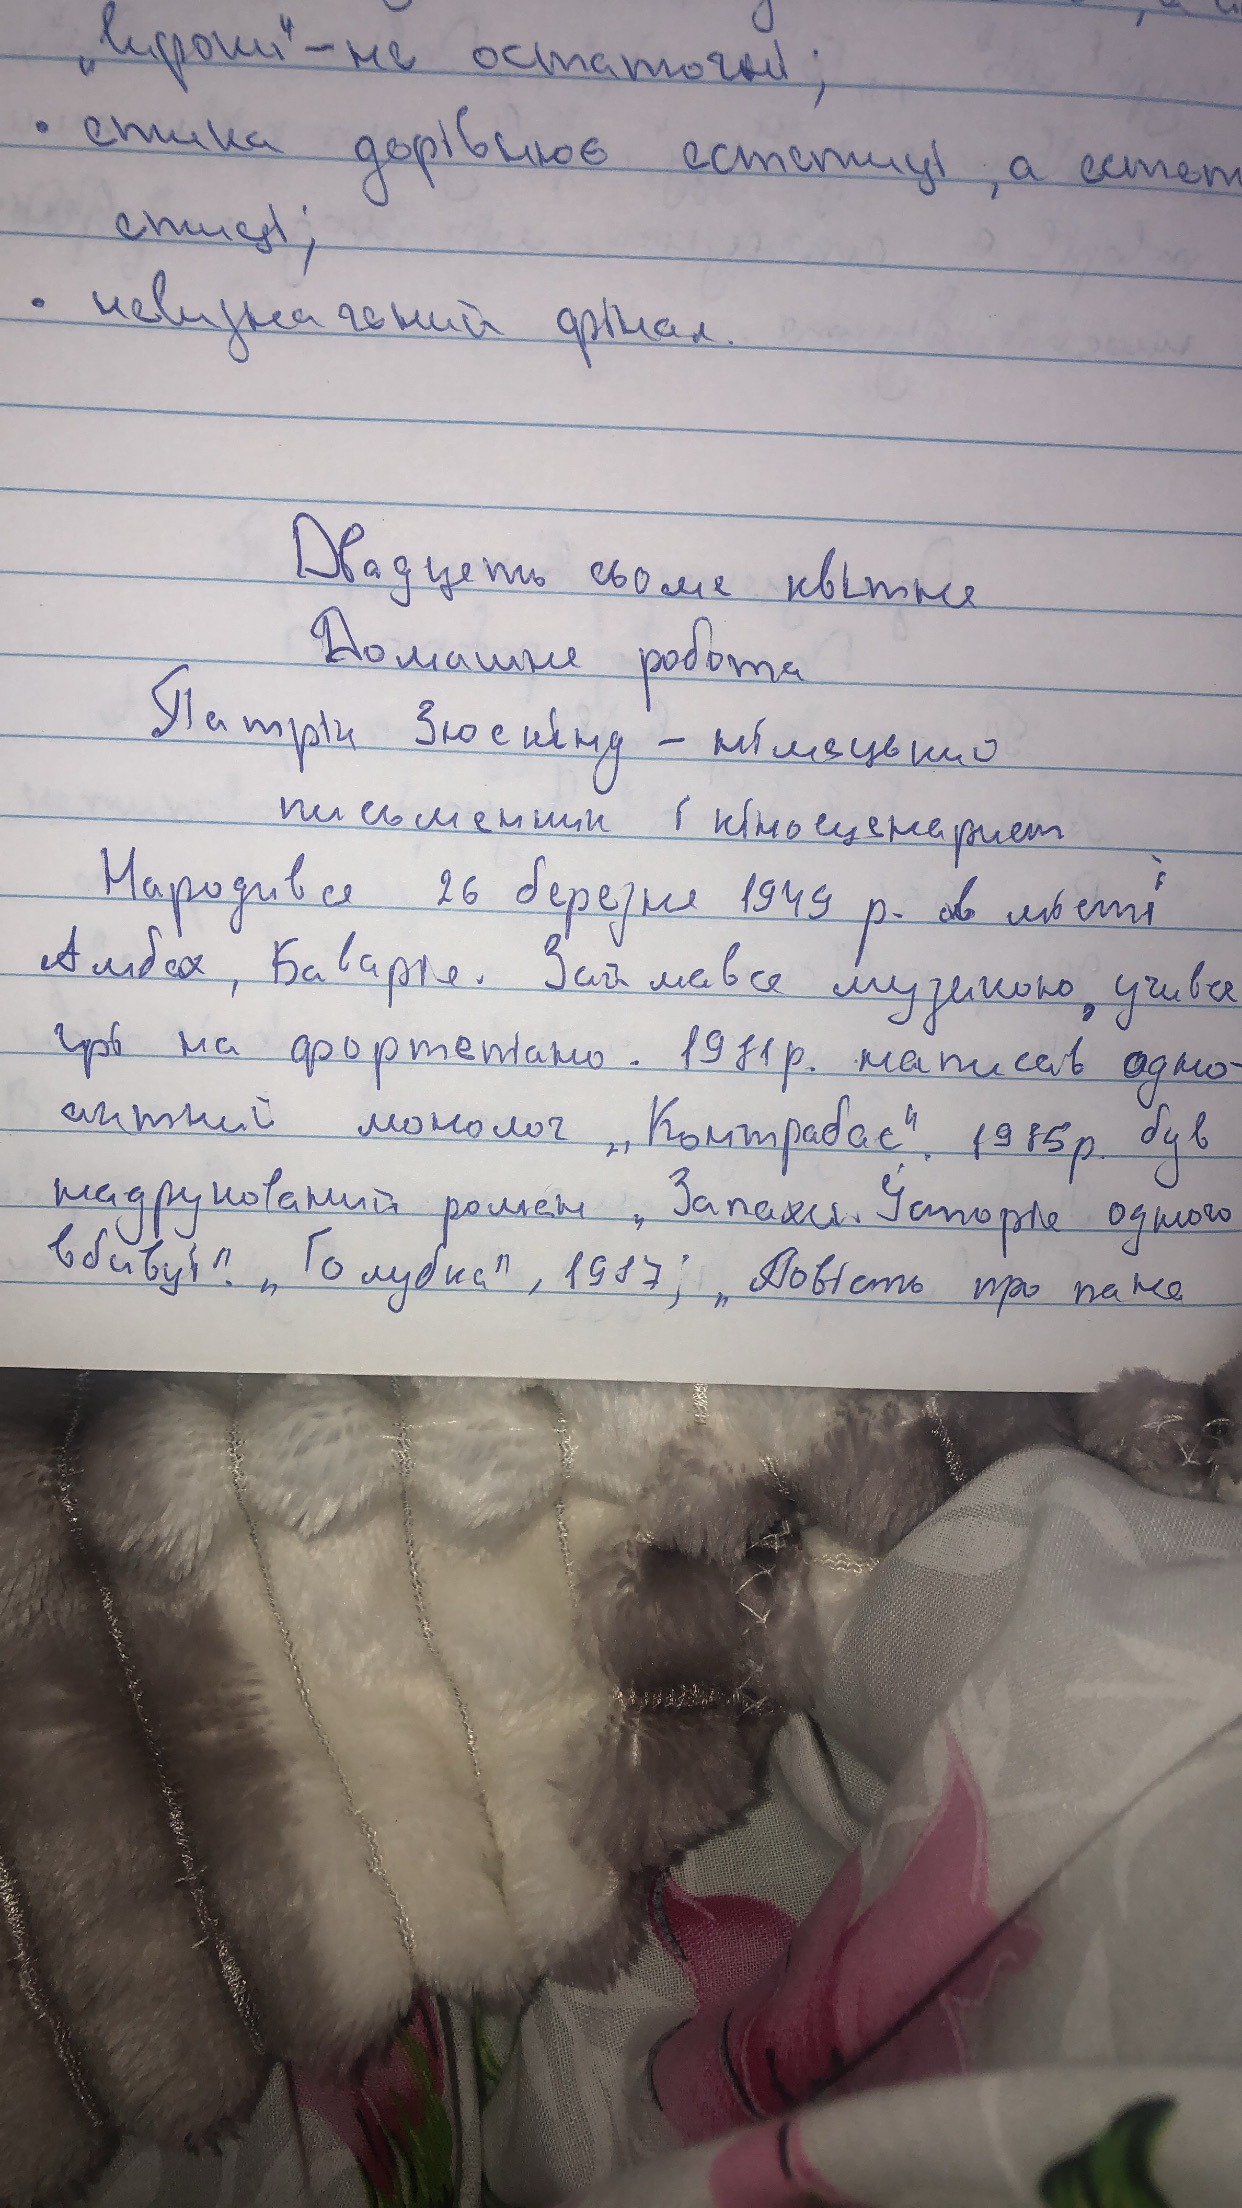 „вироки" – не остаточні;
• етика дорівнює естетиці, а естет
етиці;
• невизначений фінал.
Двадцять сьоме квітня
Домашня робота
Патрік Зюскінд – німецький
письменник і кіносценарист
Народився 26 березня 1949 р. в місті
Амбах, Баварія. Займався музикою, учився
грі на фортепіано. 1981р. написав одно-
актний монолог „Контрабас". 1985р. був
надрукований роман „Запахи. Історія одного
вбивці". „Голубка", 1987; „Повість про пана